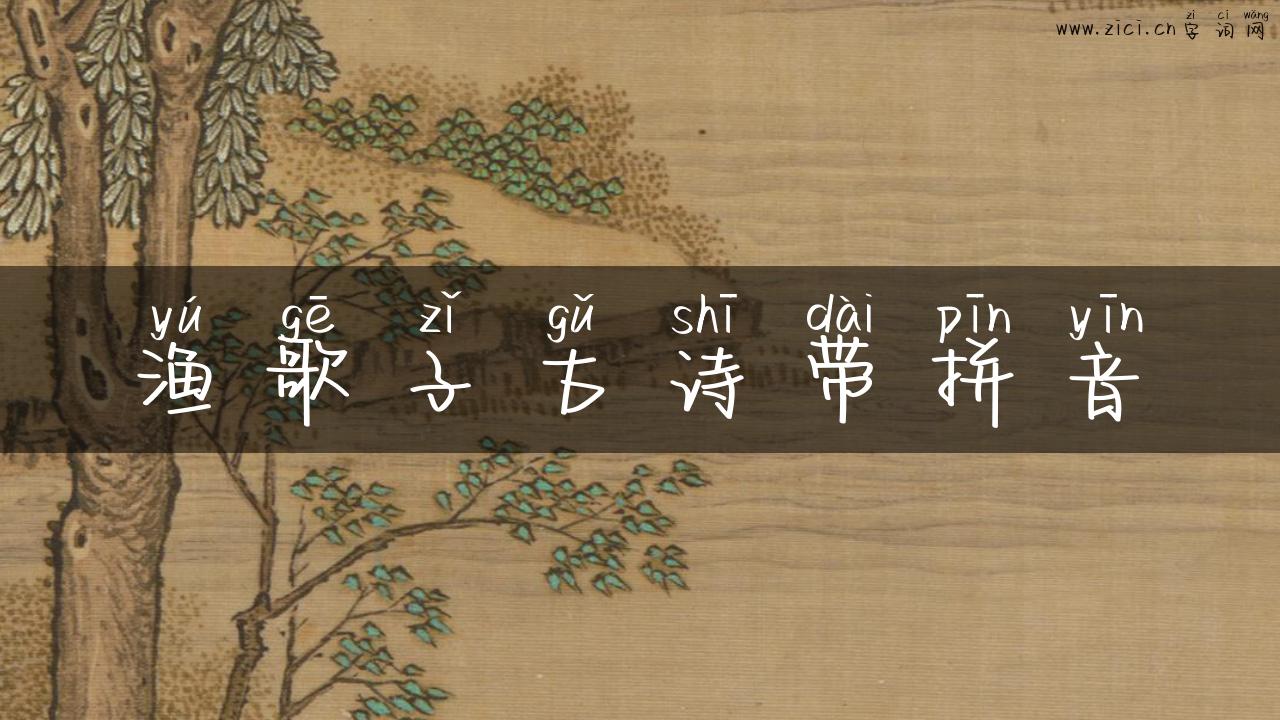 zì cí wǎng
www.zici.cn 字词网
yú gē zǐ gǔ shī dài pīn yīn
渔歌子古诗带拼音